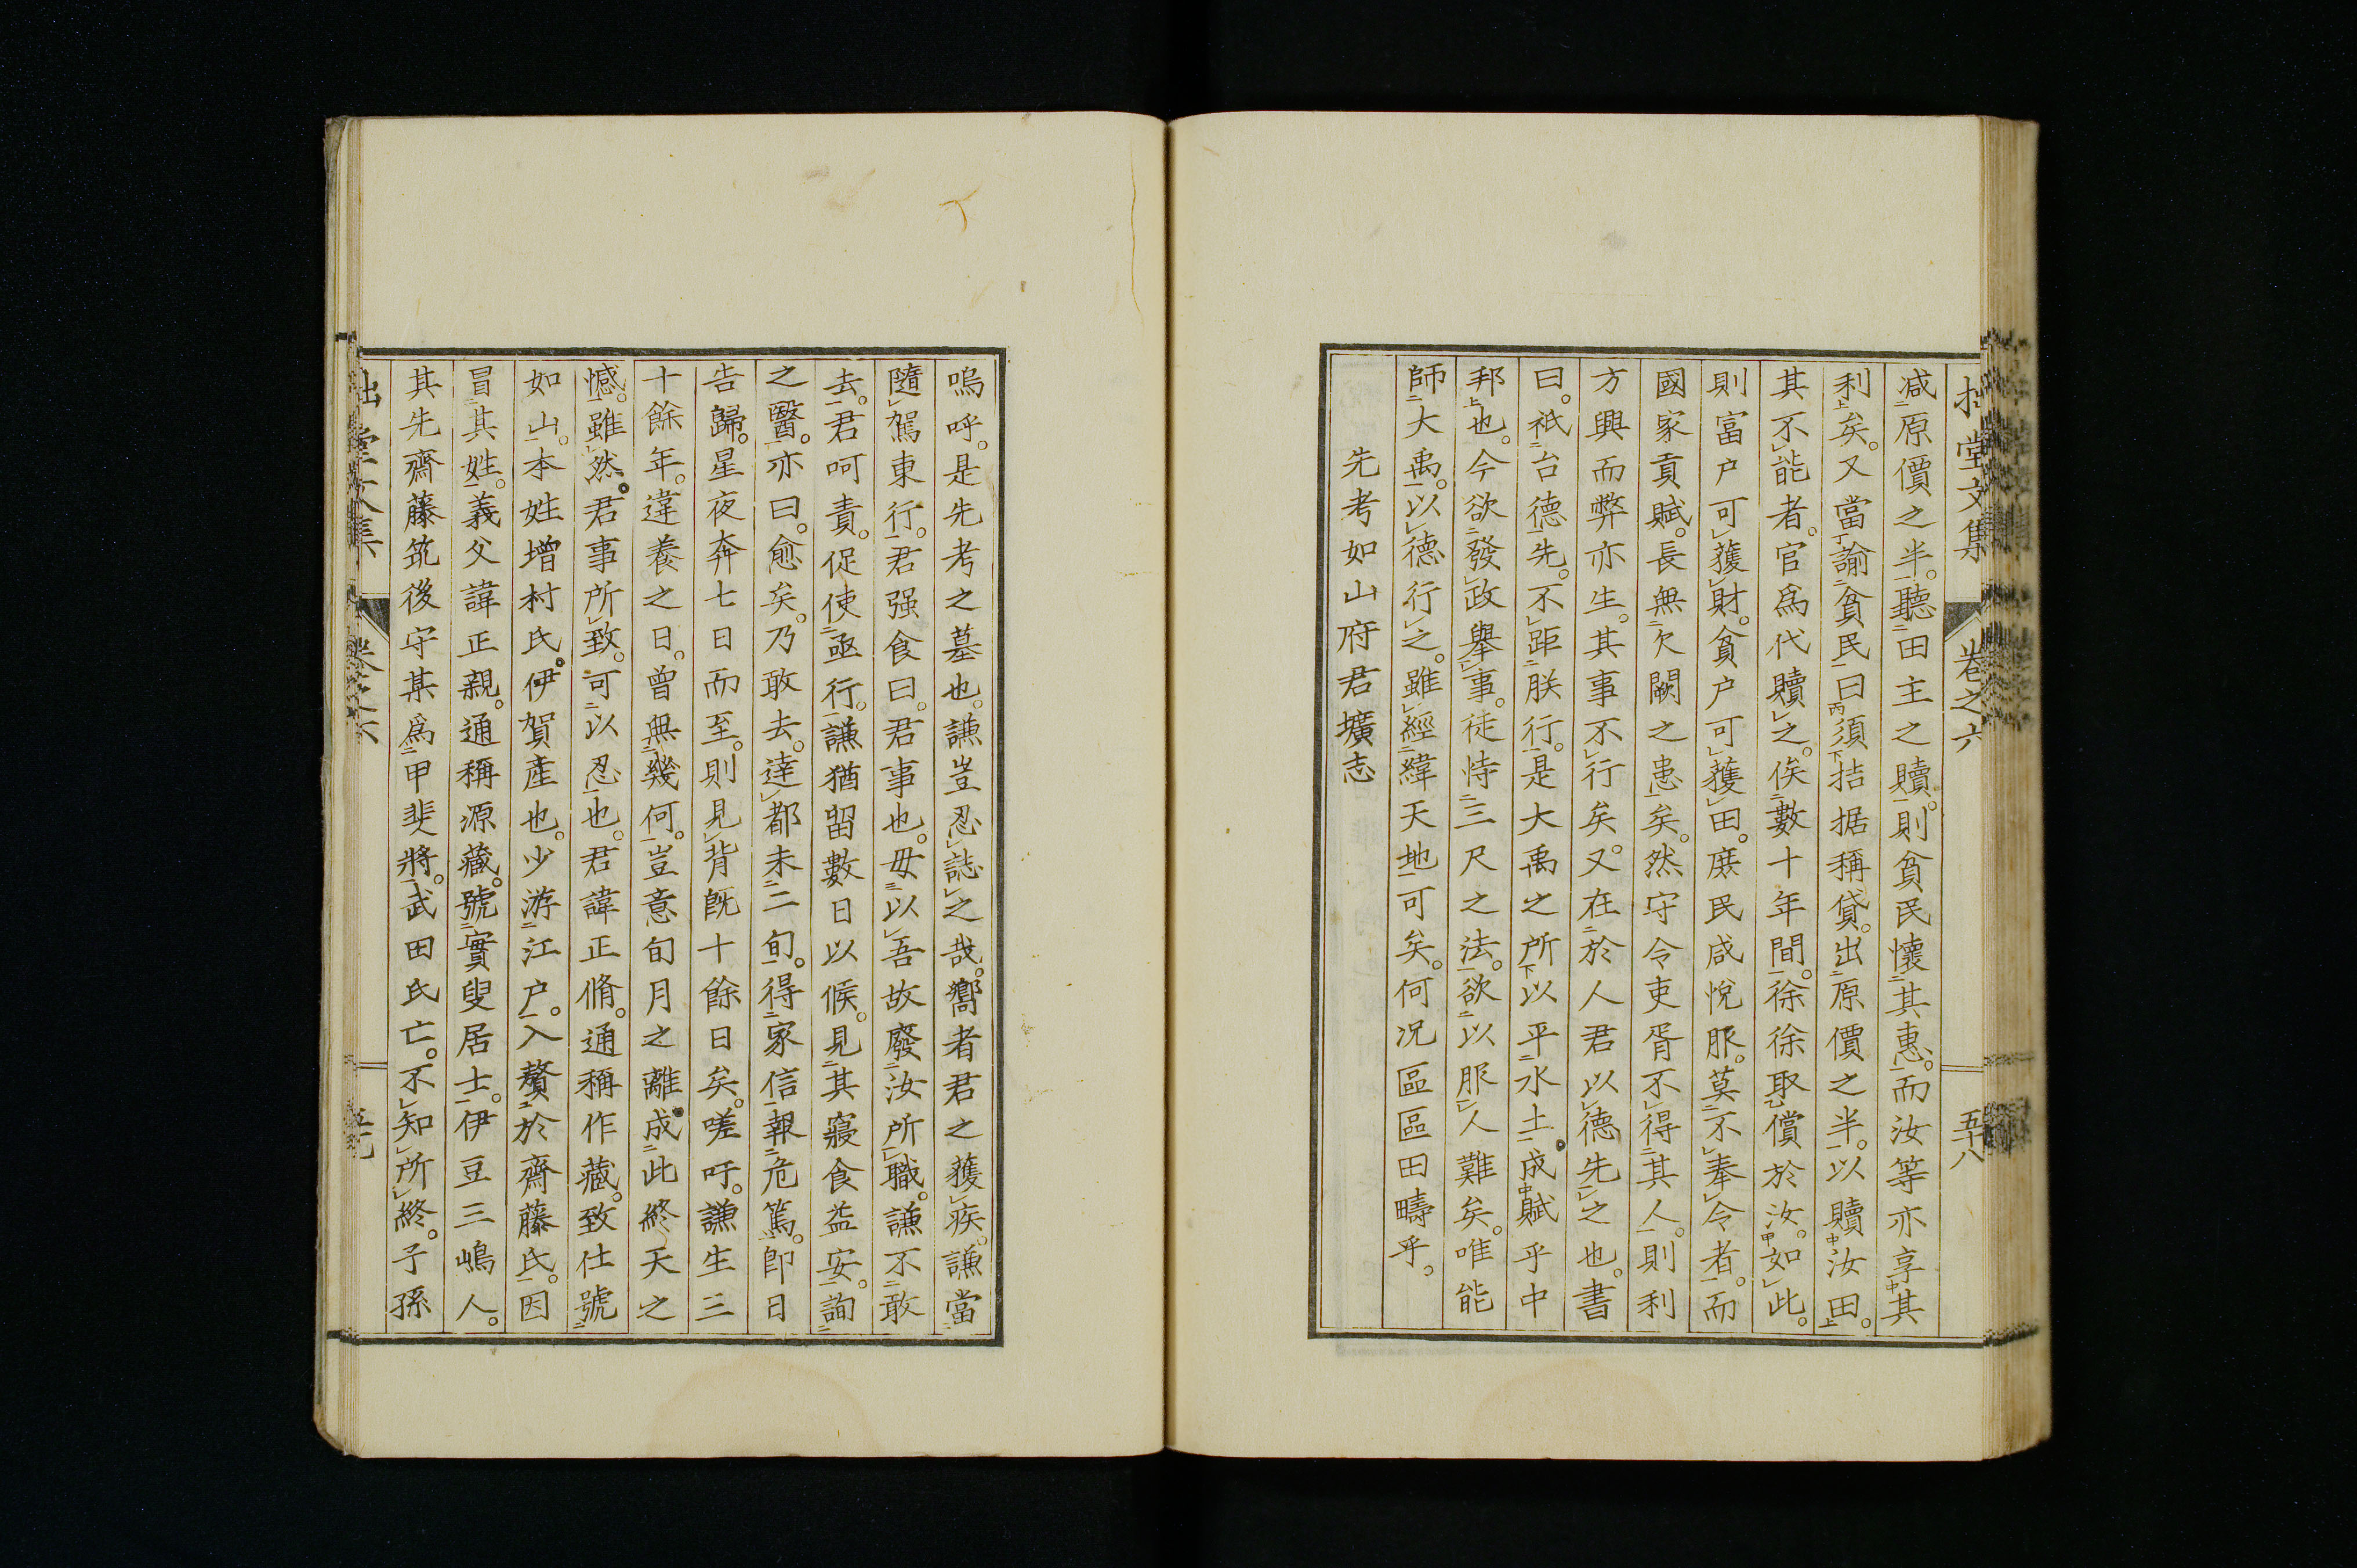 堂文集 卷之六 五十八
减原價之半。聽田主之贖。則貧民懷其惠。而汝等亦享其
利矣。又當諭貧民曰須拮据稱貸。出原價之半。以贖汝田。
其不能者。官爲代贖之。俟數十年間。徐徐取償於汝。如此。
則富户可獲財。貧户可獲田。庶民咸悅服。莫不奉令者。而
國家貢賦。長無欠闕之患矣。然守令吏胥不得其人。則利
方興而弊亦生。其事不行矣。又在於人君以德先之也。書
曰。祇台德先。不距朕行。是大禹之所以平水土。成賦乎中
邦也。今欲發政舉事。徒恃三尺之法。欲以服人難矣。唯能
師大禹。以德行之。雖經緯天地可矣。何况區區田疇乎。
先考如山府君壙志
嗚呼。是先考之墓也。謙豈忍誌之哉。嚮者君之獲疾。謙當
隨駕東行。君强食曰。君事也。毋以吾故廢汝所職。謙不敢
去。君呵責。促使亟行。謙猶留數日以候。見其寢食益安。詢
之醫。亦曰。愈矣。乃敢去。達都未二旬。得家信報危篤。卽日
告歸。星夜奔七日而至。則見背既十餘日矣。嗟吁。謙生三
十餘年。違養之日。曾無幾何。豈意旬月之離。成此終天之
憾。雖然。君事所致。可以忍也。君諱正脩。通稱作藏。致仕號
如山。本姓增村氏。伊賀產也。少游江户。入贅於齋藤氏。因
冒其姓。義父諱正親。通稱源藏。號實叟居士。伊豆三嶋人。
其先齋藤筑後守某爲甲斐將。武田氏亡。不知所終。子孫
堂文集